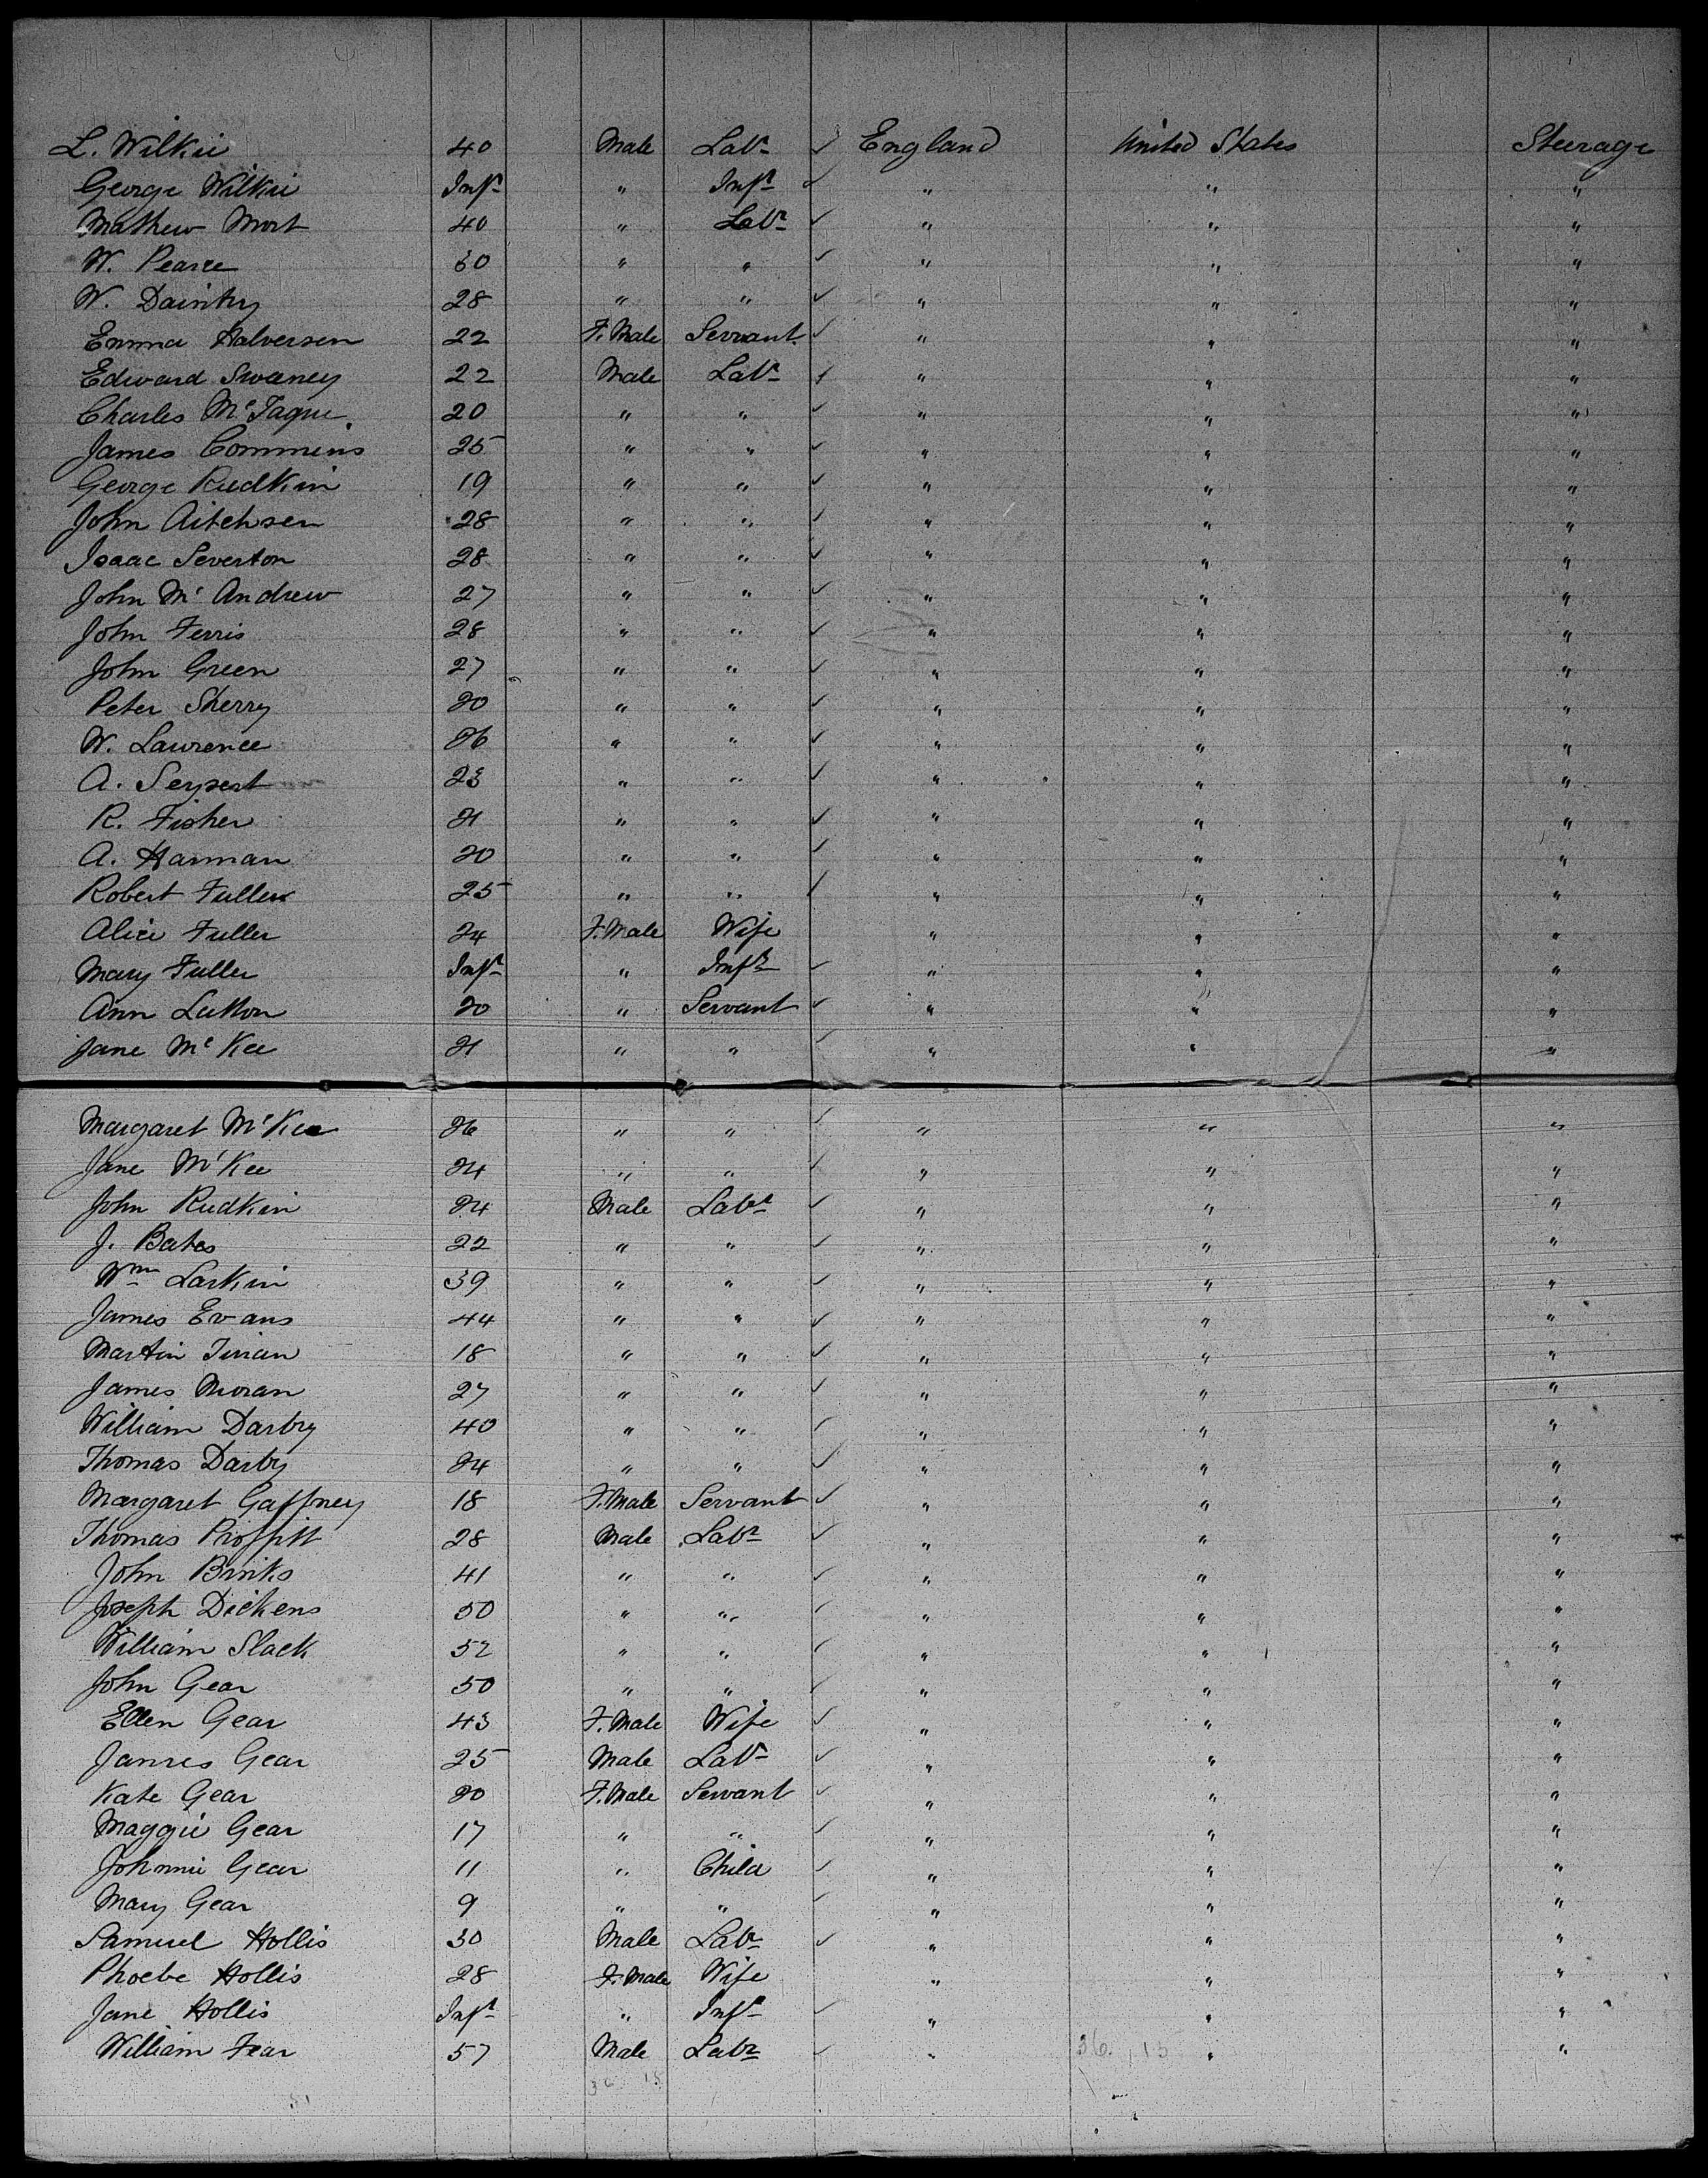 L. Wilkie 40 Male Labr ✓ England United States Steerage
George Wilkie Inft " Inft ✓ " " "
Mathew Mort 40 " Labr ✓ " " "
W. Pearce 30 " " ✓ " " "
W. Daintry 28 " " ✓ " " "
Emma Halversen 22 F. Male Servant ✓ " " "
Edward Swaney 22 Male Labr ✓ " " "
Charles McTague 20 " " ✓ " " "
James Commins 25 " " ✓ " " "
George Rudkin 19 " " ✓ " " "
John Aitchsen 28 " " ✓ " " "
Isaac Severton 28 " " ✓ " " "
John Mc Andrew 27 " " ✓ " " "
John Ferris 28 " " ✓ " " "
John Green 27 " " ✓ " " "
Peter Sherry 20 " " ✓ " " "
W. Lawrence 26 " " ✓ " " "
A. 23 " " ✓ " " "
R. Fisher 21 " " ✓ " " "
A. Harman 20 " " ✓ " " "
Robert Fuller 25 " " ✓ " " "
Alice Fuller 24 F. Male Wife " " "
Mary Fuller Inft " Inft ✓ " " "
Ann 20 " Servant ✓ " " "
Jane Mc Kee 21 " " ✓ " " "
Margaret McKee 26 " " ✓ " " "
Jane McKee 24 " " ✓ " " "
John Rudkin 24 Male Labr ✓ " " "
J. Bates 22 " " ✓ " " "
Wm Larkin 39 " " ✓ " " "
James Evans 44 " " ✓ " " "
Martin 18 " " ✓ " " "
James Moran 27 " " ✓ " " "
William Darby 40 " " ✓ " " "
Thomas Darby 24 " " ✓ " " "
Margaret Gaffney 18 F. Male Servant ✓ " " "
Thomas Proffitt 28 Male Labr ✓ " " "
John Brinks 41 " " ✓ " " "
Joseph Dickens 50 " " ✓ " " "
William Slack 52 " " ✓ " " "
John Gear 50 " " ✓ " " "
Ellen Gear 43 F. Male Wife ✓ " " "
James Gear 25 Male Labr ✓ " " "
Kate Gear 20 F. Male Servant ✓ " " "
Maggie Gear 17 " " ✓ " " "
Johnnie Gear 11 " Child ✓ " " "
Mary Gear 9 " " ✓ " " "
Samuel Hollis 30 Male Labr ✓ " " "
Phoebe Hollis 28 F. Male Wife " " "
Jane Hollis Inft " Inft ✓ " " "
William Fear 57 Male Labr ✓ " 36. 15 " "
36 15
51